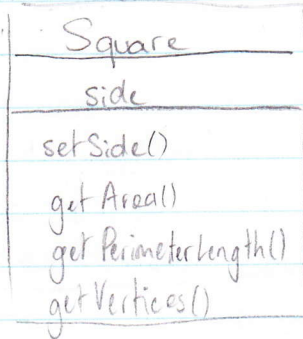 Square
side
setSide()
getArea()
getPerimeterLength()
getVertices()